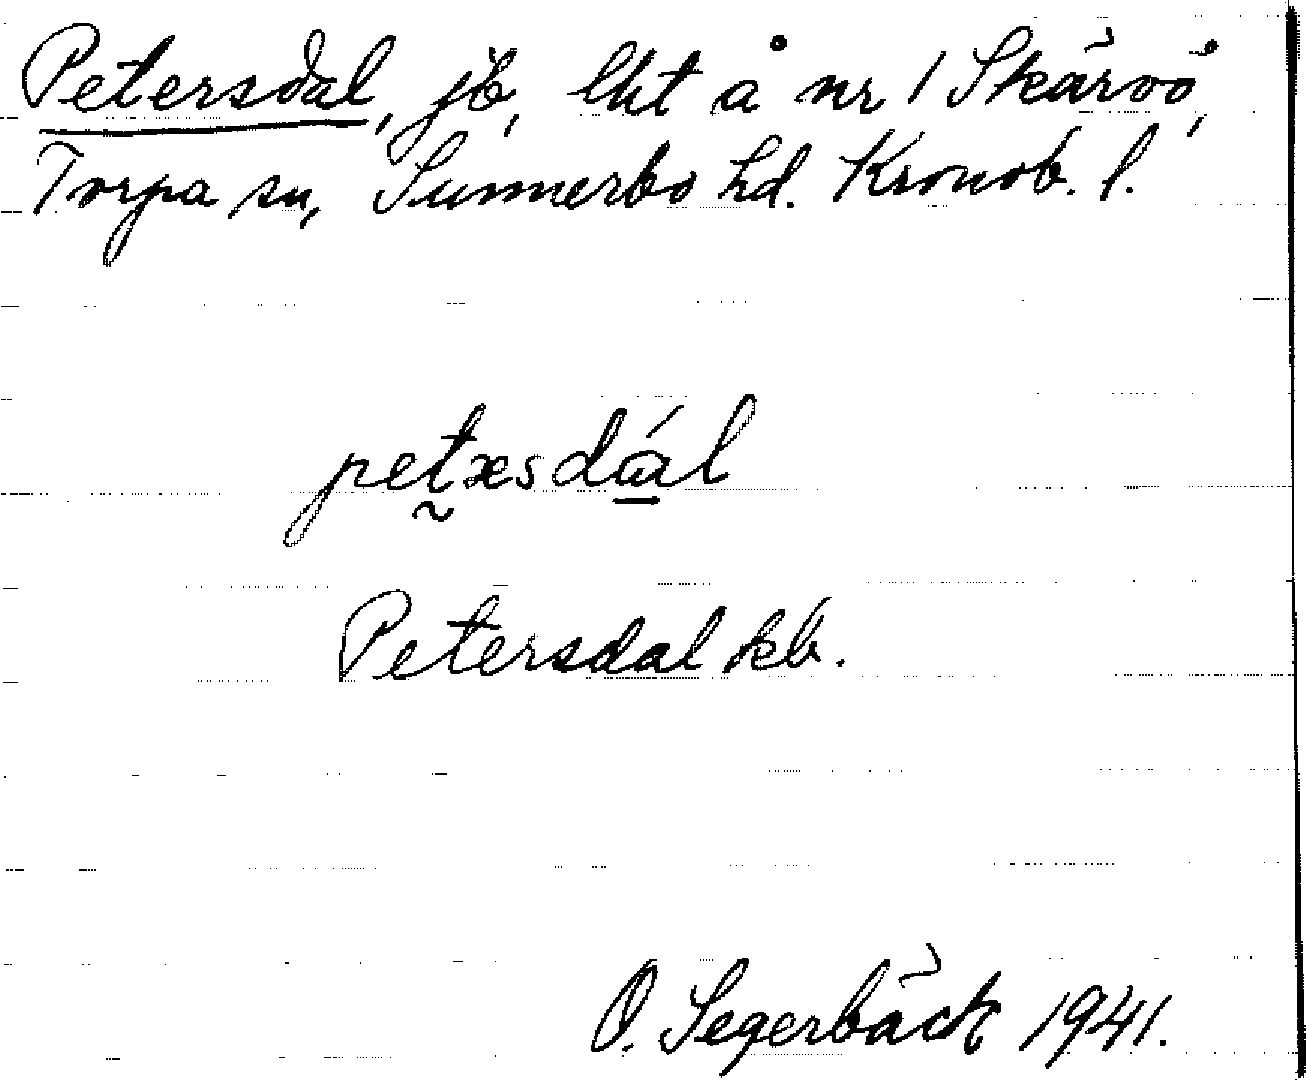 Petersdal, jb, lht å nr 1 Skärvö,
Torpa sn, Sunnerbo hd. Kronob. l.
petæsdál
Petersdal kb.
O. Segerbäck 1941.